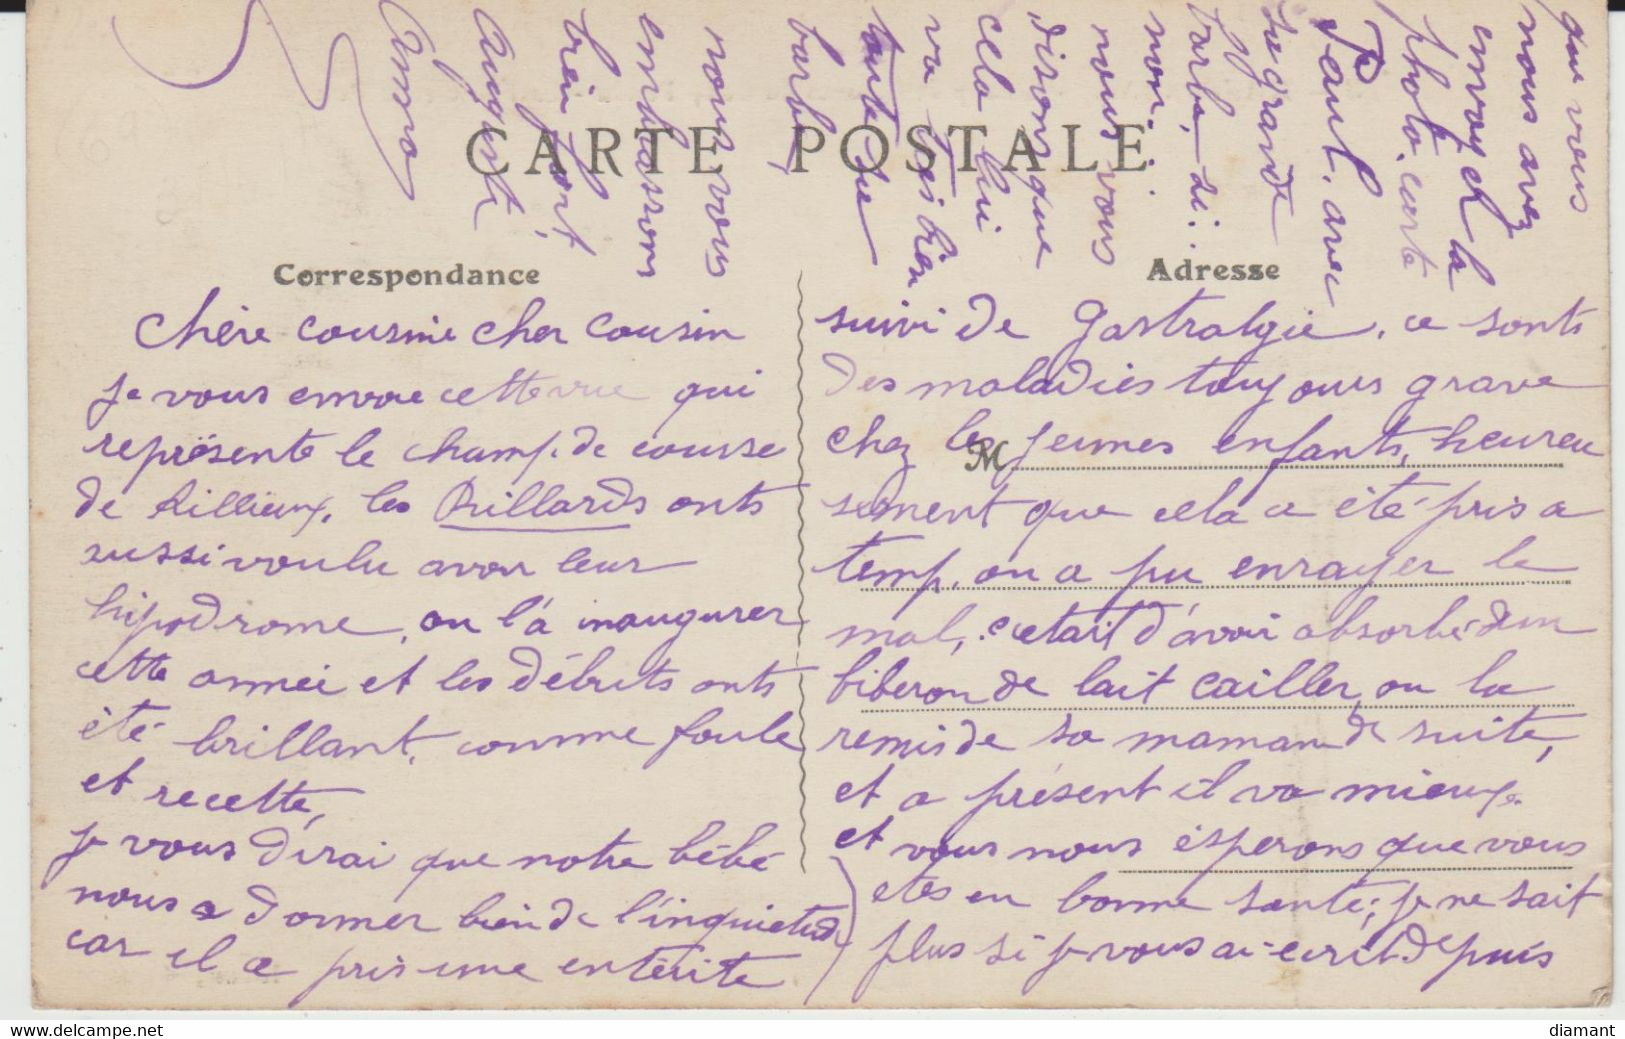 CARTE POSTALE
Correspondance
Chère cousine cher cousin
je vous envoie cette vue qui
représente le champ. de course
de Rillieux, les Rillards onts
aussi voulu avoir leur
hipodrome, on l'à inaugurer
cette année et les débuts onts
été brillant, comme foule
et recette,
je vous dirai que notre bébé
nous a donner bien de l'inquietude
car il a pris une enterite
Adresse
suivi de gastralgie, ce sonts
des maladies toujours grave
chez les jeunes enfants, heureu
M
sement que cela a été pris a
temp, on a pu enrayer le
mal, c'etait d'avoir absorbé d'un
biberon de lait cailler, on la
remis de sa maman de suite,
et a présent il va mieux.
et vous nous esperons que vous
etes en bonne santé; je ne sait
plus si je vous ai ecrit depuis
que vous
nous avez
envoyé la
photo. carte
Paul. avec
sa grande
barbe, si.
non.
nous vous
disons que
cela lui
va très bien
toute sa
barbe
nous vous
embrassons
bien fort,